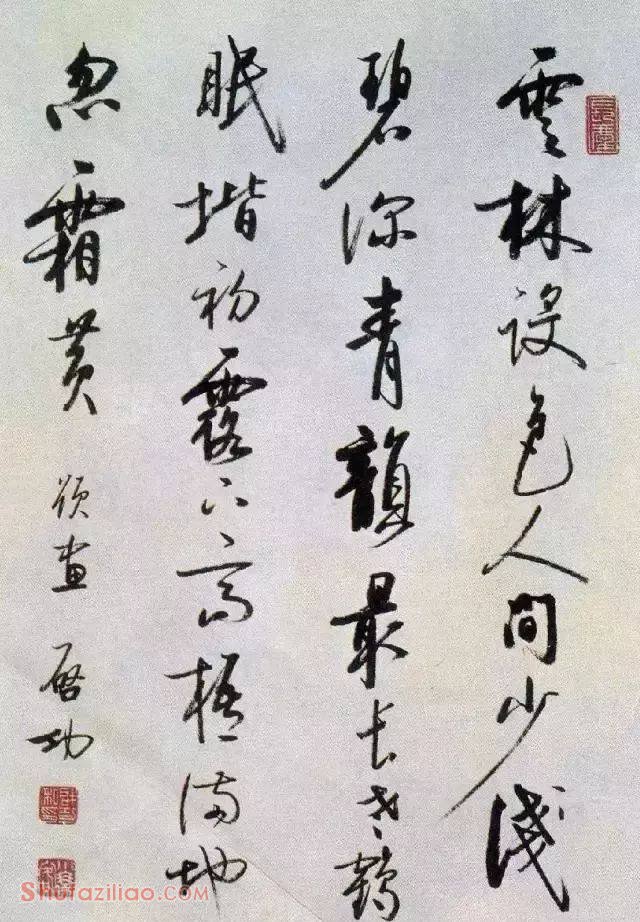 雲林設色人間少淺
碧深青韻最長老鶴
眠堦初露下高梧滿地
忽霜黄 題畫 啓功
Shufaziliao.COM